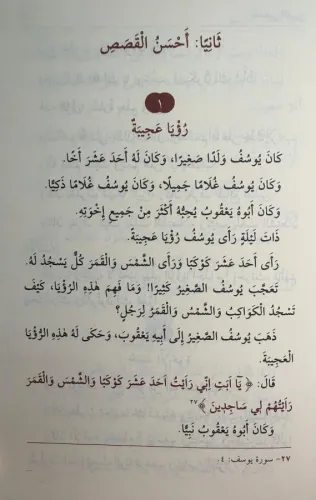 ثَانِيًا: أَحْسَنُ الْقَصَصِ
١
رُؤْيَا عَجِيبَةٌ
كَانَ يُوسُفُ وَلَدًا صَغِيرًا، وَكَانَ لَهُ أَحَدَ عَشَرَ أَخًا.
وَكَانَ يُوسُفُ غُلَامًا جَمِيلًا، وَكَانَ يُوسُفُ غُلَامًا ذَكِيًّا.
وَكَانَ أَبُوهُ يَعْقُوبُ يُحِبُّهُ أَكْثَرَ مِنْ جَمِيعِ إِخْوَتِهِ.
ذَاتَ لَيْلَةٍ رَأَى يُوسُفُ رُؤْيَا عَجِيبَةً.
رَأَى أَحَدَ عَشَرَ كَوْكَبًا وَرَأَى الشَّمْسَ وَالْقَمَرَ كُلٌّ يَسْجُدُ لَهُ.
تَعَجَّبَ يُوسُفُ الصَّغِيرُ كَثِيرًا! وَمَا فَهِمَ هَٰذِهِ الرُّؤْيَا، كَيْفَ
تَسْجُدُ الْكَوَاكِبُ وَالشَّمْسُ وَالْقَمَرُ لِرَجُلٍ؟
ذَهَبَ يُوسُفُ الصَّغِيرُ إِلَى أَبِيهِ يَعْقُوبَ، وَحَكَى لَهُ هَٰذِهِ الرُّؤْيَا
الْعَجِيبَةَ.
قَالَ: ﴿ يَا أَبَتِ إِنِّي رَأَيْتُ أَحَدَ عَشَرَ كَوْكَبًا وَالشَّمْسَ وَالْقَمَرَ
رَأَيْتُهُمْ لِي سَاجِدِينَ ﴾٢٧
وَكَانَ أَبُوهُ يَعْقُوبُ نَبِيًّا.
٢٧- سورة يوسف: ٤.